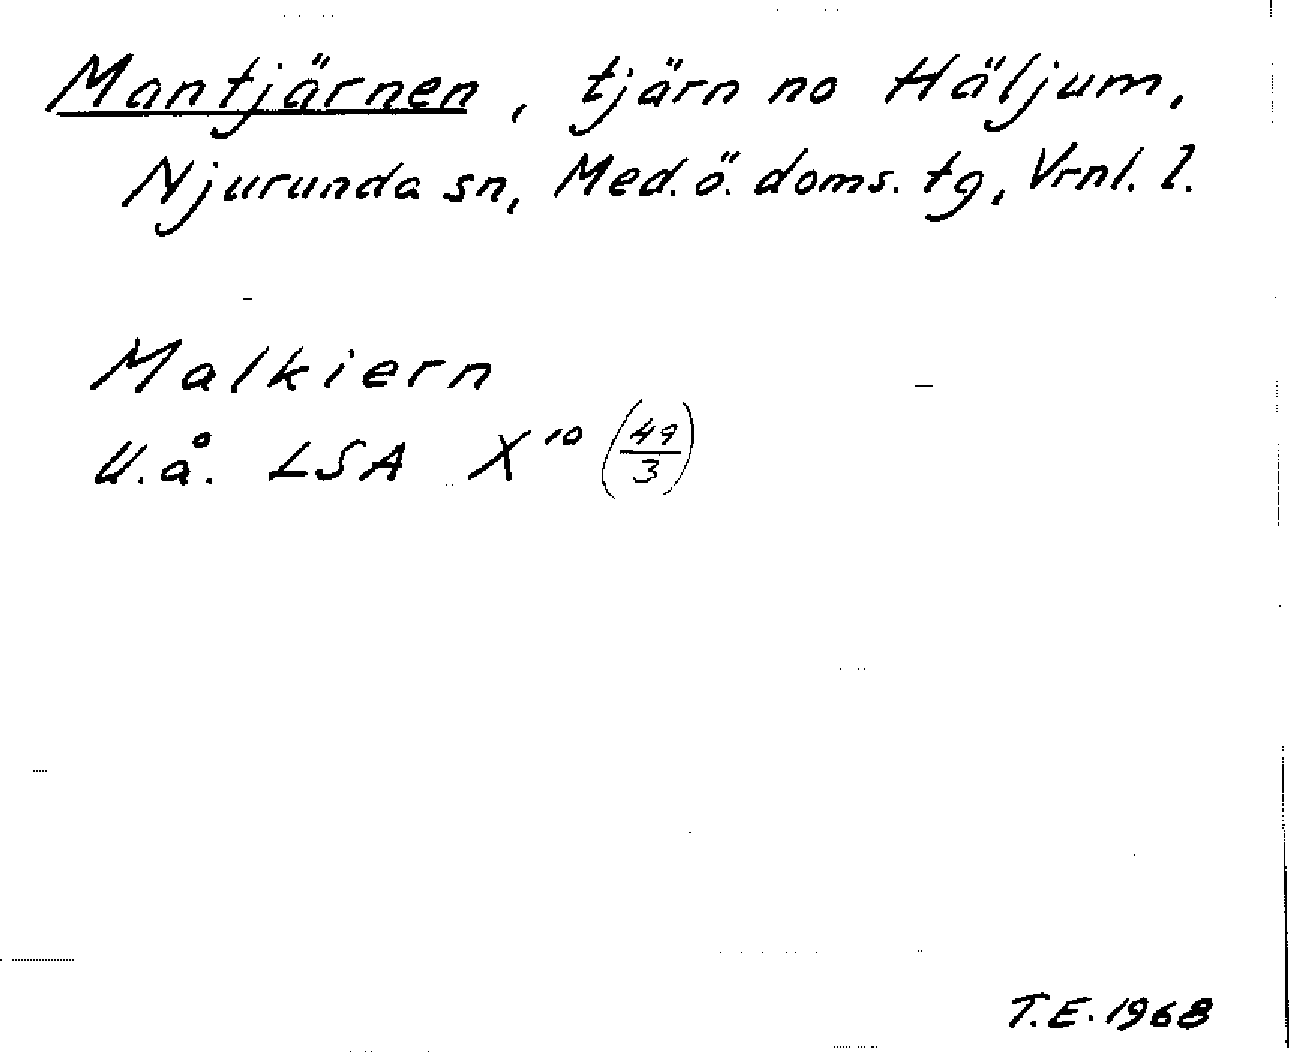 Mantjärnen, tjärn no Häljum,
Njurunda sn, Med. ö. doms. tg, Vrnl. l.
Malkiern
U.å. LSA X¹⁰ (49/3)
T.E. 1968